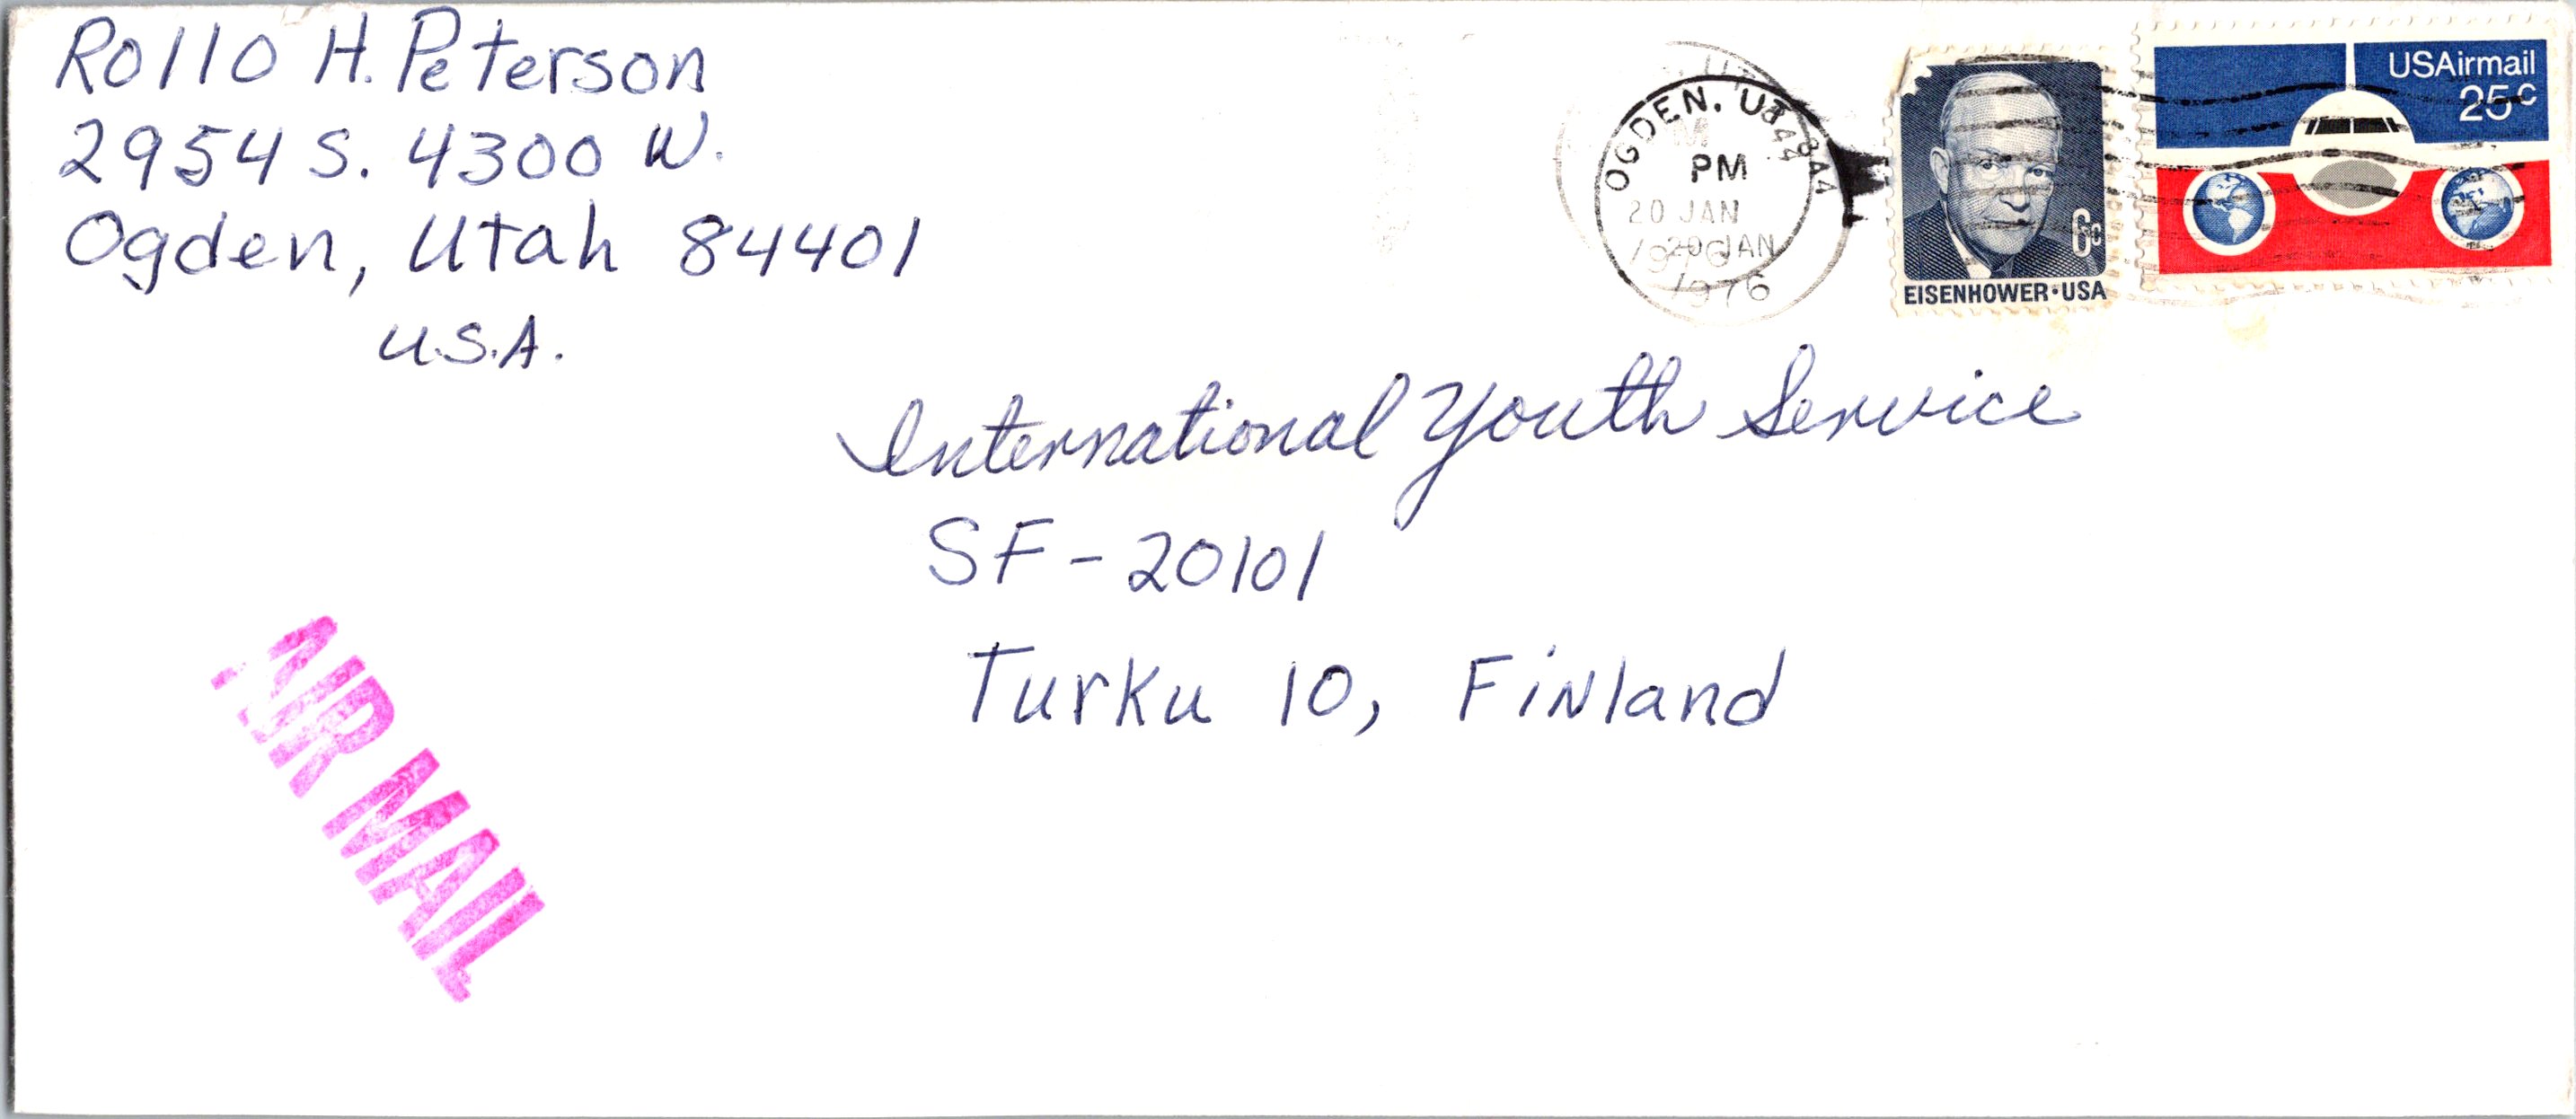 Rollo H. Peterson
2954 S. 4300 W.
Ogden, Utah 84401
U.S.A.
OGDEN, UT
844
PM
20 JAN
1976
20 JAN
1976
6c
EISENHOWER·USA
USAirmail
25c
International Youth Service
SF-20101
Turku 10, Finland
AIR MAIL